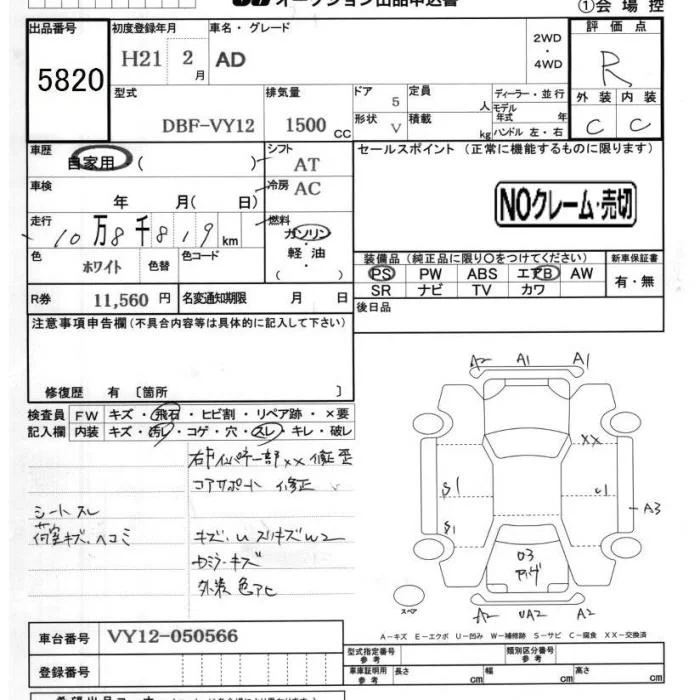 オークション出品申込書
①会場控
出品番号 5820
初度登録年月 H21 2月
車名・グレード AD
2WD・4WD
評価点 R
型式 DBF-VY12
排気量 1500 CC
ドア 5
形状 V
定員 人
積載 kg
ディーラー・並行
モデル年式 年
ハンドル 左・右
外装 C
内装 C
車歴 自家用 ( )
シフト AT
セールスポイント (正常に機能するものに限ります)
車検 年 月( 日)
冷房 AC
NOクレーム・売切
走行 10万8千819km
燃料 ガソリン・軽油 ( )
色 ホワイト 色替 色コード
装備品(純正品に限り○をつけてください) 新車保証書
PS PW ABS エアB AW 有・無
SR ナビ TV カワ
R券 11,560円 名変通知期限 月 日
後日品
注意事項申告欄(不具合内容等は具体的に記入して下さい)
修復歴 有 〔箇所 〕
検査員 FW キズ・飛石・ヒビ割・リペア跡・×要
記入欄 内装 キズ・汚レ・コゲ・穴・スレ・キレ・破レ
一部××修正 歪
コアサポート 修正
シートスレ
荷室キズ、ヘコミ
キズ、U スリキズW2
キズ
外装 色アセ
A2 A1 A1
XX
S1 U1 A3
S1
03
スペア
A2 UA2 A2
A-キズ E-エクボ U-凹み W-補修跡 S-サビ C-腐食 XX-交換済
車台番号 VY12-050566
型式指定番号 参考 類別区分番号 参考
登録番号
車庫証明用 参考 長さ cm 幅 cm 高さ cm